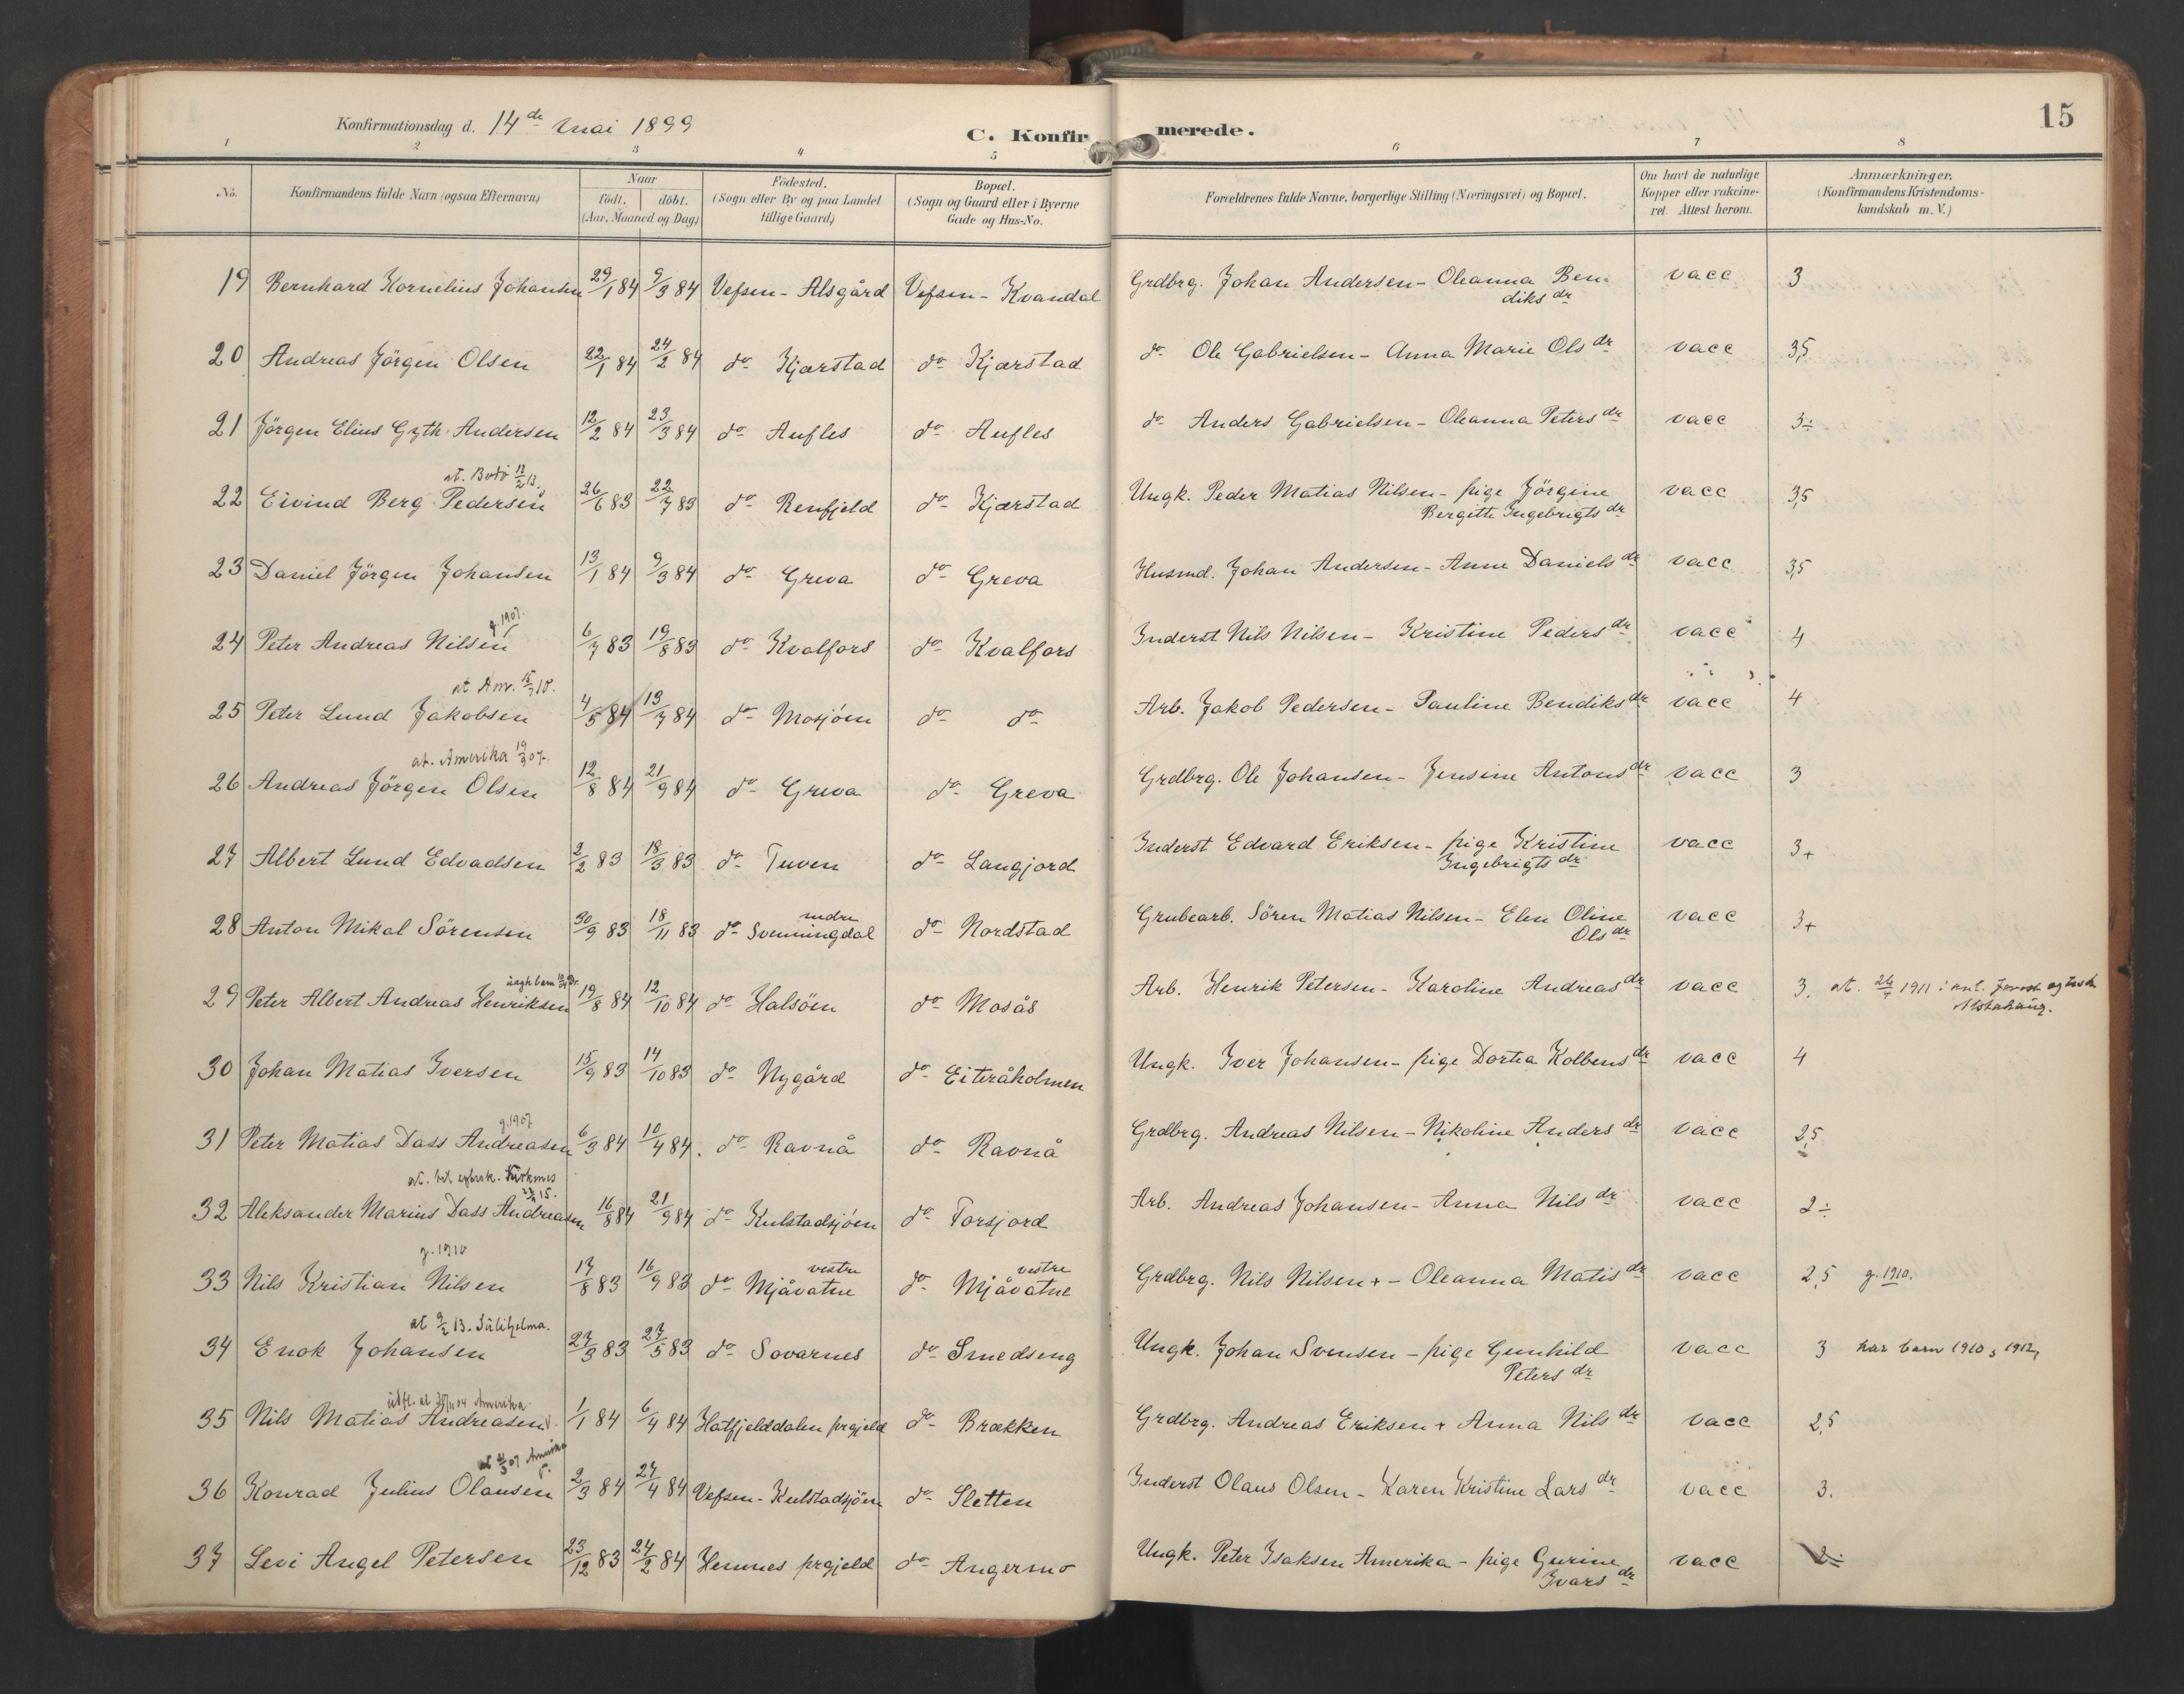 15
Konfirmationsdag d. 14de Mai 1899
C. Konfirmerede.
1 2 3 4 5 6 7 8
No. Konfirmandens fulde Navn (ogsaa Efternavn) Naar födt. döbt. (Aar, Maaned og Dag) Födested. (Sogn eller By og paa Landet tillige Gaard) Bopæl. (Sogn og Gaard eller i Byerne Gade og Hus-No. Forældrenes fulde Navne, borgerlige Stilling (Næringsvei) og Bopæl. Om havt de naturlige Kopper eller vakcineret. Attest herom. Anmærkninger. (Konfirmandens Kristendomskundskab m. V.)
19 Bernhard Kornelius Johansen 29/1 84 9/3 84 Vefsen - Alsgård Vefsen - Kvandal Grdbrg. Johan Andersen - Oleanna Bendiksdr vacc 3
20 Andreas Jörgen Olsen 22/1 84 24/2 84 do Kjærstad do Kjærstad do Ole Gabrielsen - Anna Marie Olsdr vacc 3,5
21 Jörgen Elius Gyth Andersen 12/2 84 23/3 84 do Aufles do Aufles do Anders Gabrielsen - Oleanna Petersdr vacc 3÷
at. Bodö 12/2 13.
22 Eivind Berg Pedersen 26/6 83 22/7 83 do Renfjeld do Kjærstad Ungk. Peder Matias Nilsen - pige Jörgine Bergitte Ingebrigtsdr vacc 3,5
23 Daniel Jörgen Johansen 13/1 84 9/3 84 do Greva do Greva Husmd. Johan Andersen - Anne Danielsdr vacc 3,5
g. 1907.
24 Peter Andreas Nilsen 6/7 83 19/8 83 do Kvalfors do Kvalfors Inderst Nils Nilsen - Kristine Pedersdr vacc 4
at Am. 15/3 10.
25 Peter Lund Jakobsen 4/5 84 13/7 84 do Mosjöen do do Arb. Jakob Pedersen - Pauline Bendiksdr vacc 4
at. Amerika 19/3 07.
26 Andreas Jörgen Olsen 12/8 84 21/9 84 do Greva do Greva Grdbrg. Ole Johansen - Jensine Antonsdr vacc 3
27 Albert Lund Edvadsen 2/2 83 18/3 83 do Tuven do Langjord Inderst Edvard Eriksen - pige Kristine Ingebrigtsdr vacc 3+
28 Anton Mikal Sörensen 30/9 83 18/11 83 do indre Svenningdal do Nordstad Grubearb. Sören Matias Nilsen - Elen Oline Olsdr vacc 3+
29 Peter Albert Andreas Henriksen 19/8 84 12/10 84 do Halsöen do Mosås Arb. Henrik Petersen - Karoline Andreasdr vacc 3. at. 26/4 1911 i anl. Alstahaug.
30 Johan Matias Iversen 15/9 83 14/10 83 do Nygård do Eiteråholmen Ungk. Iver Johansen - pige Dortea Kolbensdr vacc 4
g. 1907
31 Peter Matias Dass Andreasen 6/3 84 10/4 84. do Ravnå do Ravnå Grdbrg. Andreas Nilsen - Nikoline Andersdr vacc 2,5
32 Aleksander Marius Dass Andreasen 16/8 84 21/9 84 do Kulstadsjöen do Forsjord Arb. Andreas Johansen - Anna Nilsdr vacc 2÷
g. 1910
33 Nils Kristian Nilsen 17/8 83 16/9 83 do vestre Mjåvatne do vestre Mjåvatne Grdbrg. Nils Nilsen + - Oleanna Matisdr vacc 2,5 g. 1910.
at 9/2 13. Sulitjelma.
34 Enok Johansen 27/3 83 27/5 83 do Sovarnes do Smedseng Ungk. Johan Svensen - pige Gunhild Petersdr vacc 3 har barn 1910, 1912,
Amerika
35 Nils Matias Andreasen 1/1 84 6/4 84 Hatfjelddalen prgjeld do Brækken Grdbrg. Andreas Eriksen + Anna Nilsdr vacc 2,5
Amerika
36 Konrad Julius Olausen 2/3 84 27/4 84 Vefsen - Kulstadsjöen do Sletten Inderst Olaus Olsen - Karen Kristine Larsdr vacc 3.
37 Levi Angel Petersen 23/12 83 24/2 84 Hemnes prgjeld do Angermo Ungk. Peter Isaksen Amerika - pige Gurine Ivarsdr vacc 2÷